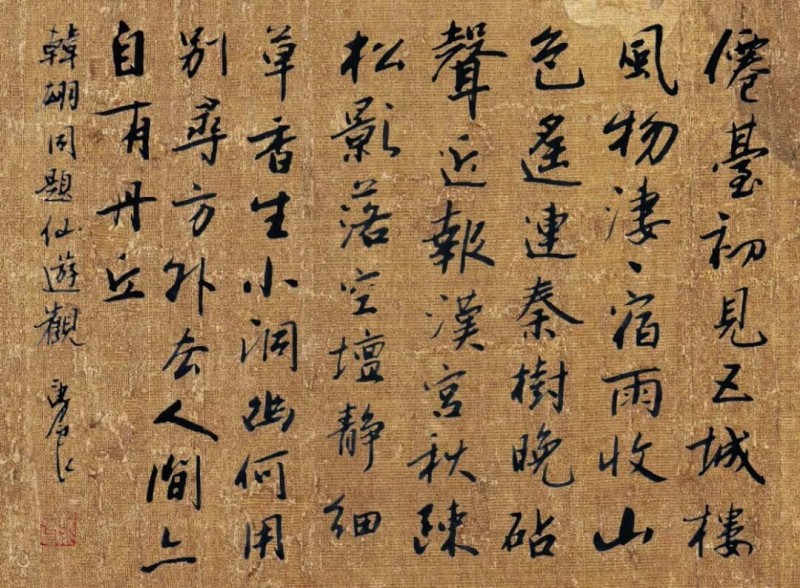 僊臺初見五城樓
風物淒〻宿雨收山
色遙連秦樹晚砧
聲近報漢宮秋疎
松影落空壇靜細
草香生小洞幽何用
別尋方外去人間亦
自有丹丘
韓翃同題仙遊觀